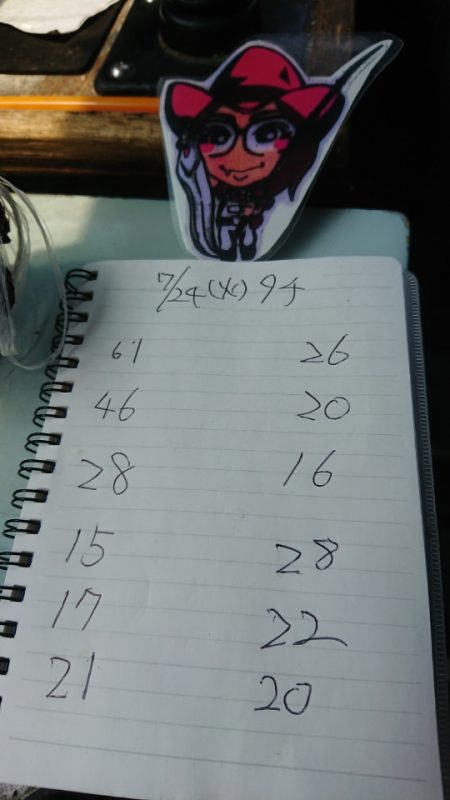 7/24(火)9チ
61 26
46 20
28 16
15 28
17 22
21 20